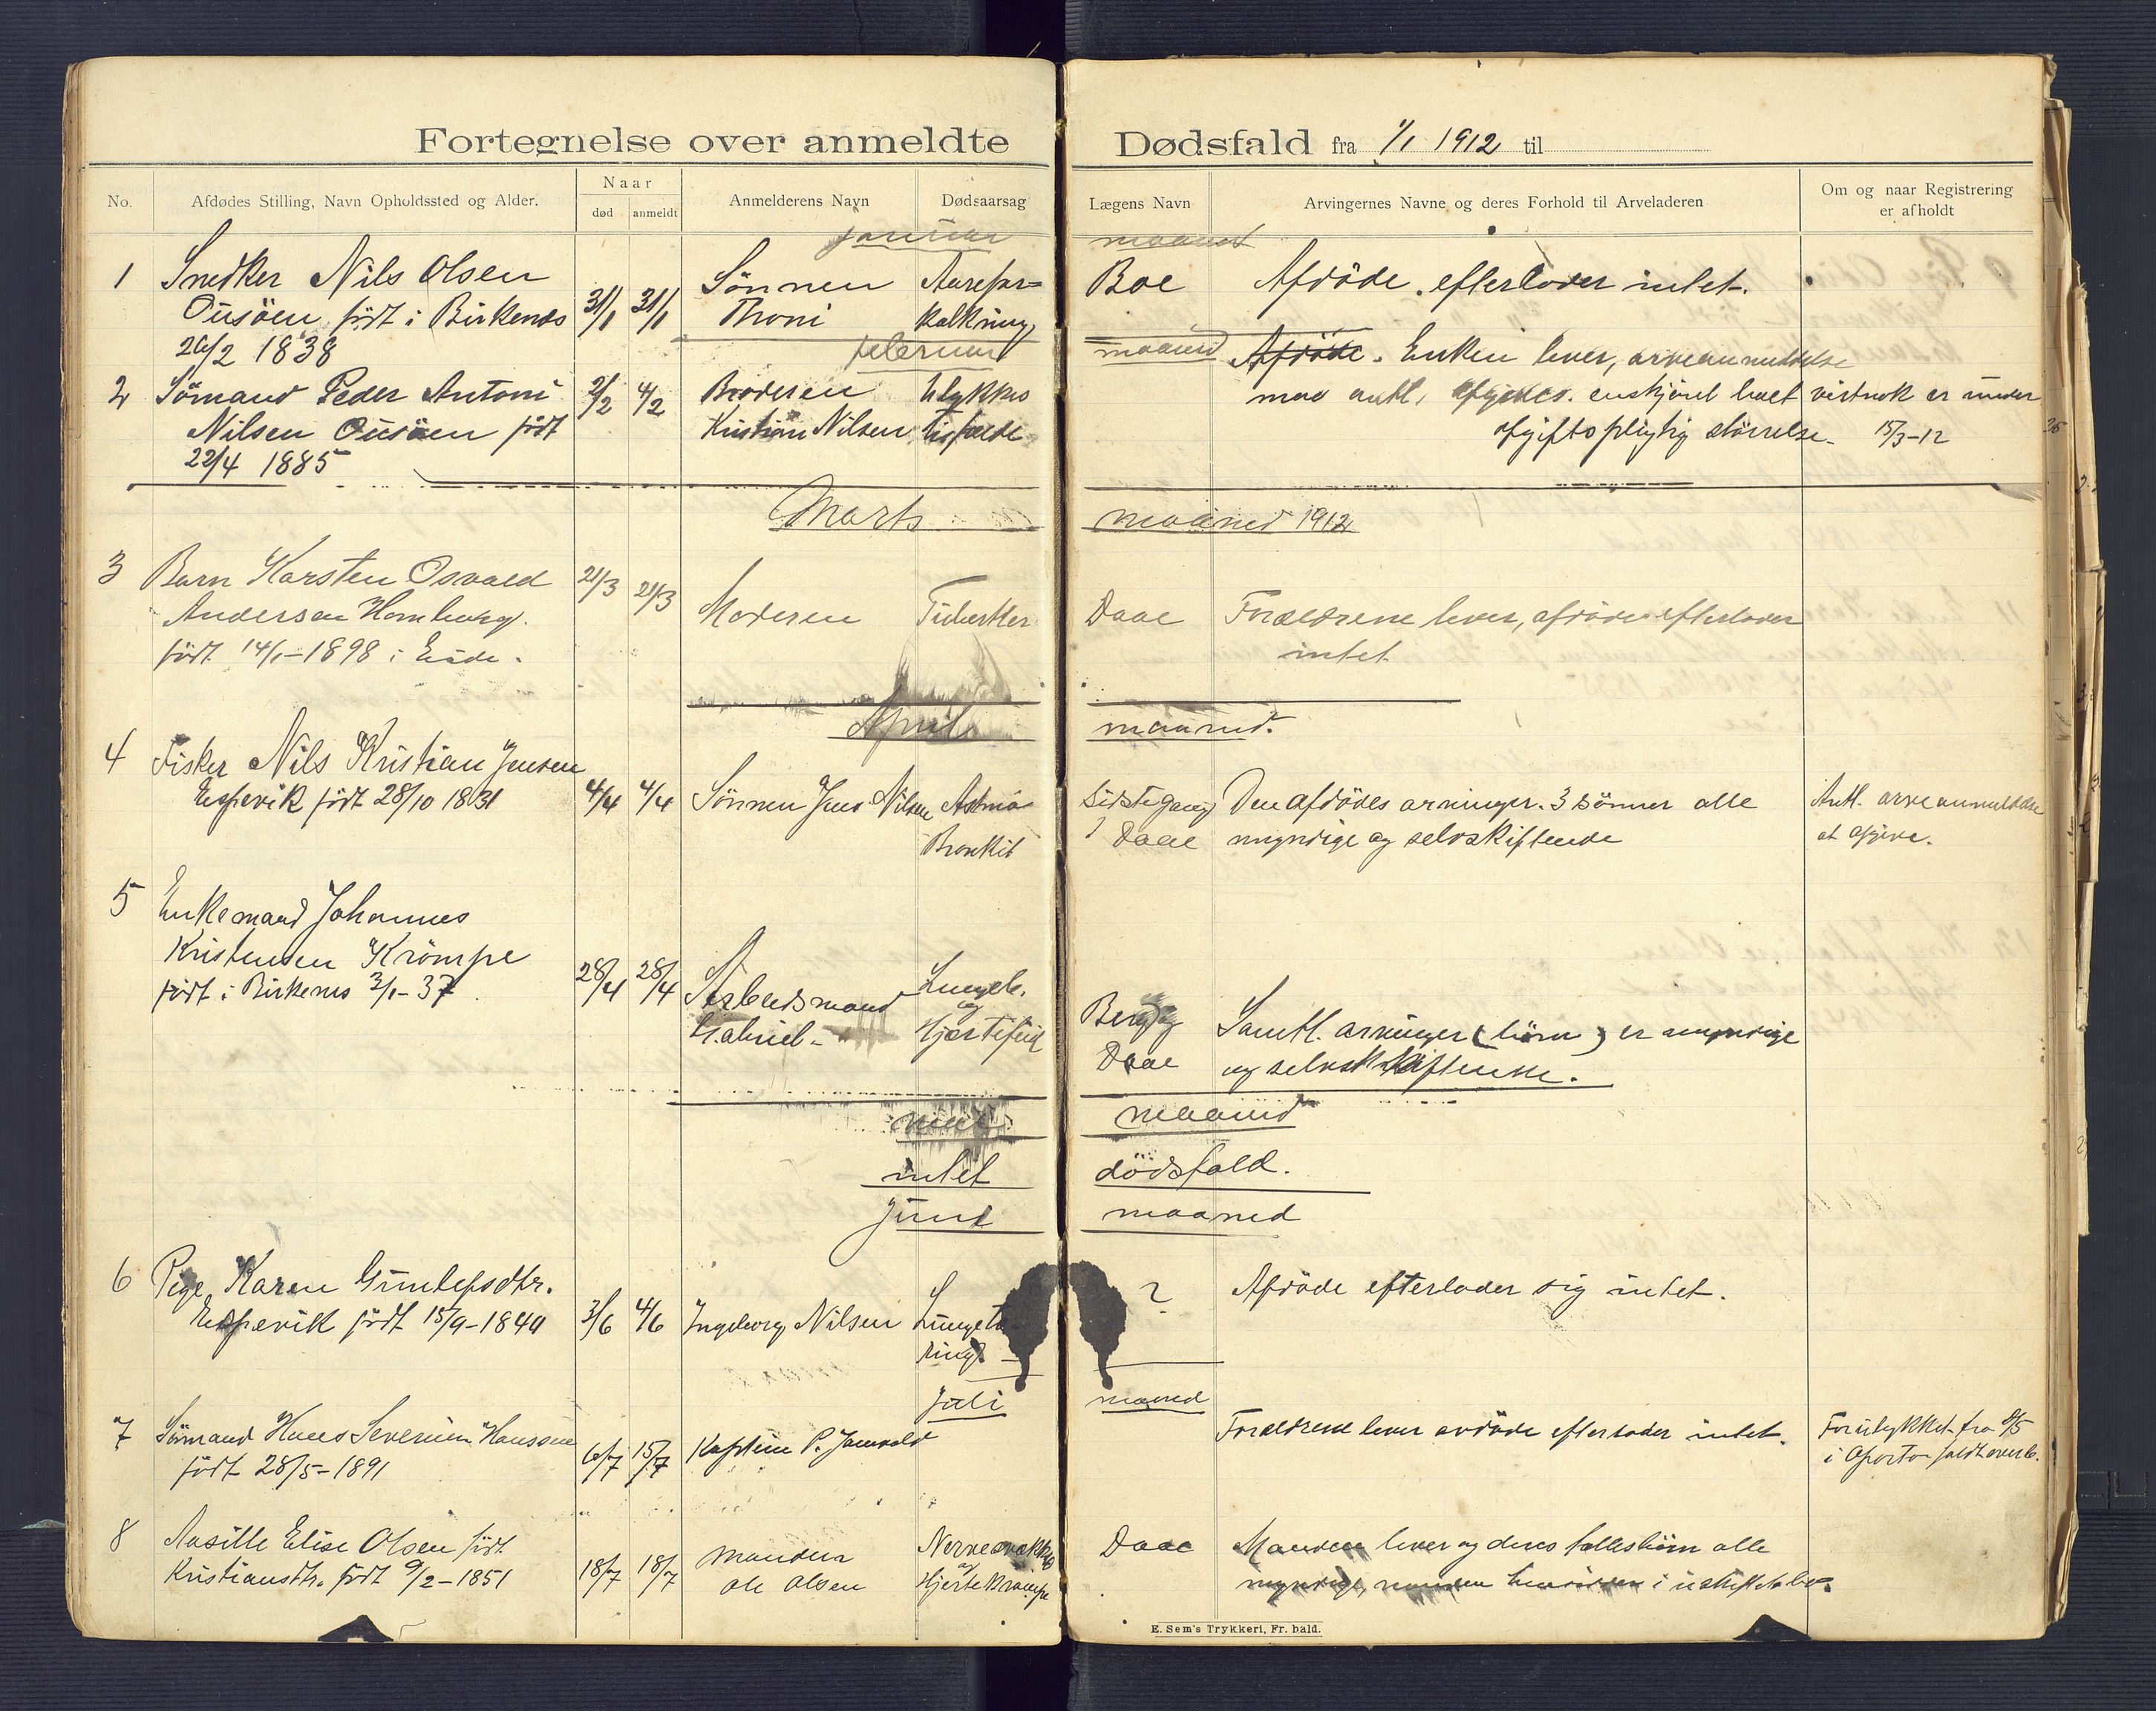 Fortegnelse over anmeldte Dødsfald fra 1/1 1912 til
No.
Afdødes Stilling, Navn Opholdssted og Alder.
Naar
død
anmeldt
Anmelderens Navn
Dødsaarsag
Lægens Navn
Arvingernes Navne og deres Forhold til Arveladeren
Om og naar Registrering
er afholdt
januar maaned
1 Snedker Nils Olsen
Ousöen födt i Birkenes
26/2 1838
31/1 31/1
Sönnen
Throni
Aarefor-
kalkning
Boe
Afdöde efterlader intet.
februar maaned
2 Sömand Peder Antoni
Nilsen Ousöen födt
22/4 1885
2/2 4/2
Broderen
Kristian Nilsen
Ulykkes
tilfælde
Afdöde. Enken lever, arveanmeldelse
maa antl. afgives. enskjönt boet vistnok er under
afgiftspligtig störrelse. 15/3-12
Marts maaned 1912
3 Barn Karsten Osvald
Andersen Homborg.
födt 14/1-1898 i Eide.
21/3 21/3
Moderen
Tuberkler
Daae
Forældrene lever, afdöde efterlader
intet
April maaned.
4 Fisker Nils Kristian Jensen
Espevik födt 28/10 1831
4/4 4/4
Sönnen Jens Nilsen
Astma
Bronkit
Sidste gang
Daae
Den afdödes arvinger. 3 sönner alle
myndige og selvskiftende
Antl. arveanmeldelse
at afgive.
5 Enkemand Johannes
Kristensen Krömpe
födt i Birkenes 3/1-37
28/4 28/4
Gabriel
Lungeb.
og
Hjertefeil
Berg og
Daae
Samtl. arvinger (börn) er myndige
og selvskiftende.
mai maaned
intet dödsfald.
Juni maaned
6 Pige Karen Gunlefsdtr.
Espevik födt 15/9-1840
3/6 4/6
Ingeborg Nilsen
?
Afdöde efterlader sig intet.
Juli maaned
7 Sömand Hans Severin Hanssen
födt 28/5-1891
6/7 15/7
Kaptein P.
Forældrene lever avdöde efterlader intet.
Forulykket fra
i Oporto faldt overb.
8 Aasille Elise Olsen födt
Kristiansdtr. födt 9/2-1851
18/7 18/7
Manden
Ole Olsen
Nervesvækkelse
og
Hjertekrampe
Daae
Manden lever og deres fellesbörn alle
myndige, manden i uskiftet bo.
E. Sem's Trykkeri, Fr. hald.